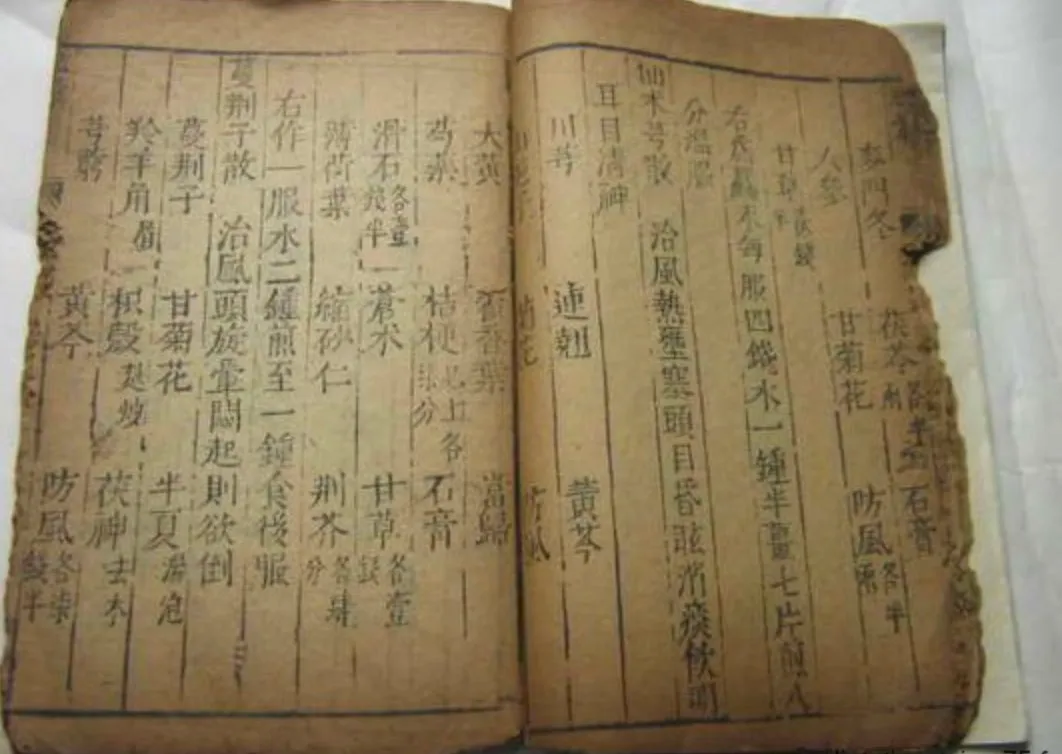 麥門冬 茯苓 各半 石膏
人參 甘菊花 防風 各半
甘草 半
右 每服四錢水一鍾半薑七片煎八
分溫服
仙朮芎散 治風熱壅塞頭目昏眩消痰飲明
耳目清神
川芎 連翹 黃芩
防風
大黃 藿香葉 當歸
芍藥 桔梗 已上各 分 石膏
滑石 各壹 錢半 蒼朮 甘草 各壹 錢
薄荷葉 縮砂仁 荊芥 各肆 分
右作一服水二鍾煎至一鍾食後服
蔓荊子散 治風頭旋暈悶起則欲倒
蔓荊子 甘菊花 半夏 湯泡
羚羊角屑 枳殼 麸炒 茯神 去木
芎藭 黃芩 防風 各柒 錢半